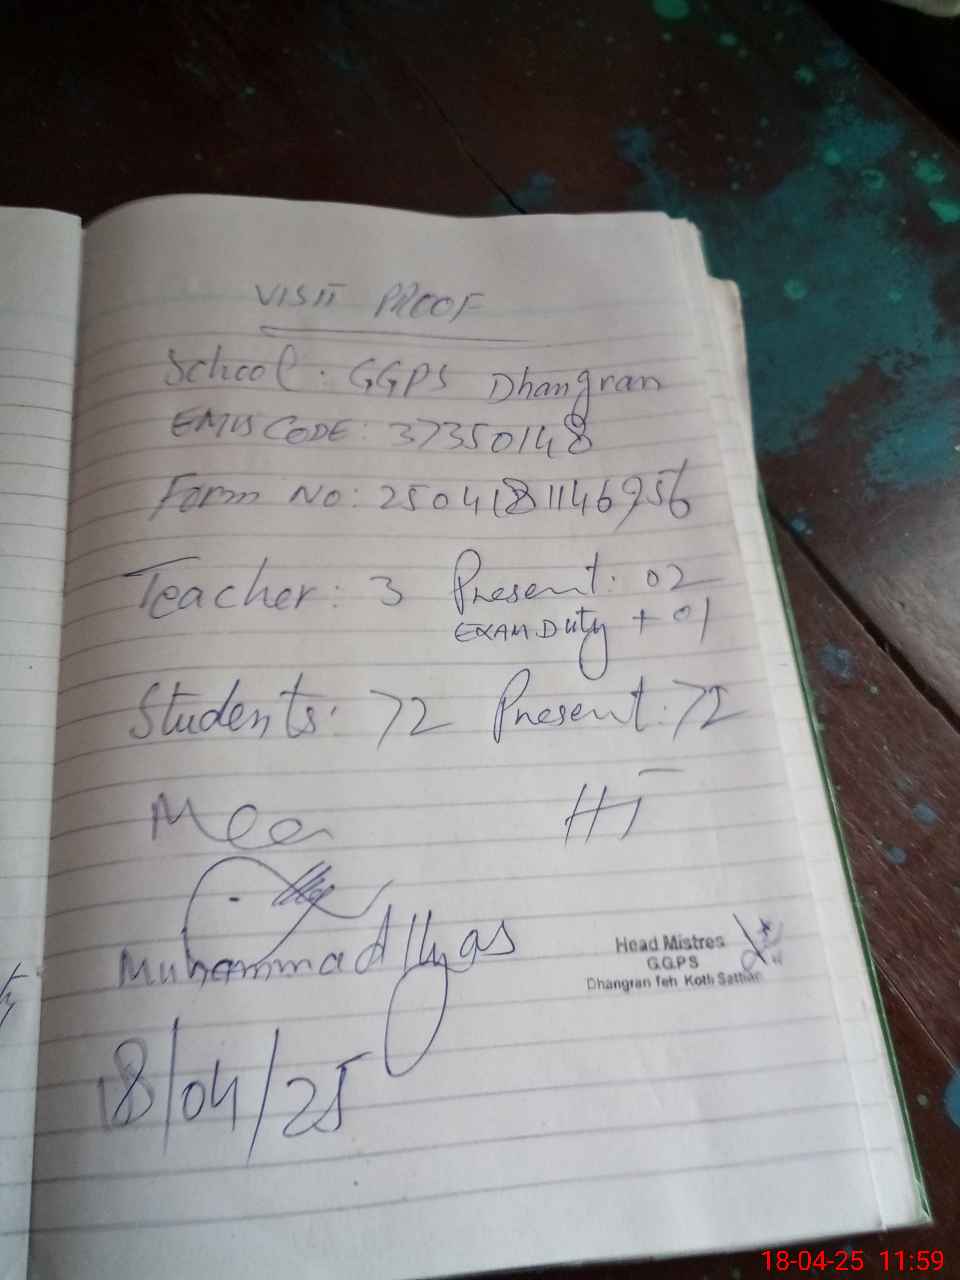 VISIT PROOF
School. GGPS Dhangran
EMIS CODE: 37350148
Form No: 2504181146956
Teacher: 3 Present: 02
EXAM Duty + 01
Students: 72 Present: 72
Mea HT
Muhammad Ilyas
Head Mistres
G.G.P.S
Dhangran Teh Kotli Sattian
18/04/25
18-04-25 11:59